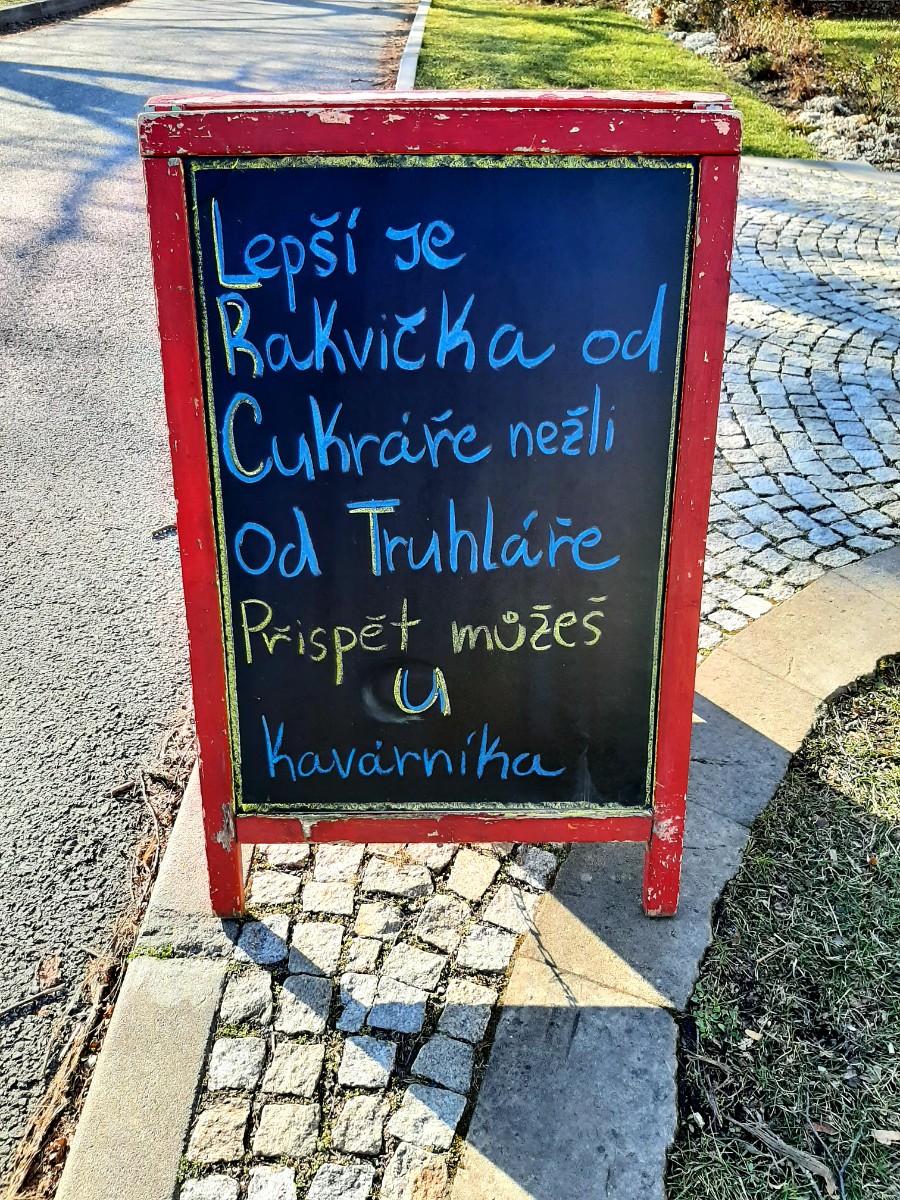 Lepší je
Rakvička od
Cukráře nežli
od Truhláře
Přispět můžeš
u
kavárníka